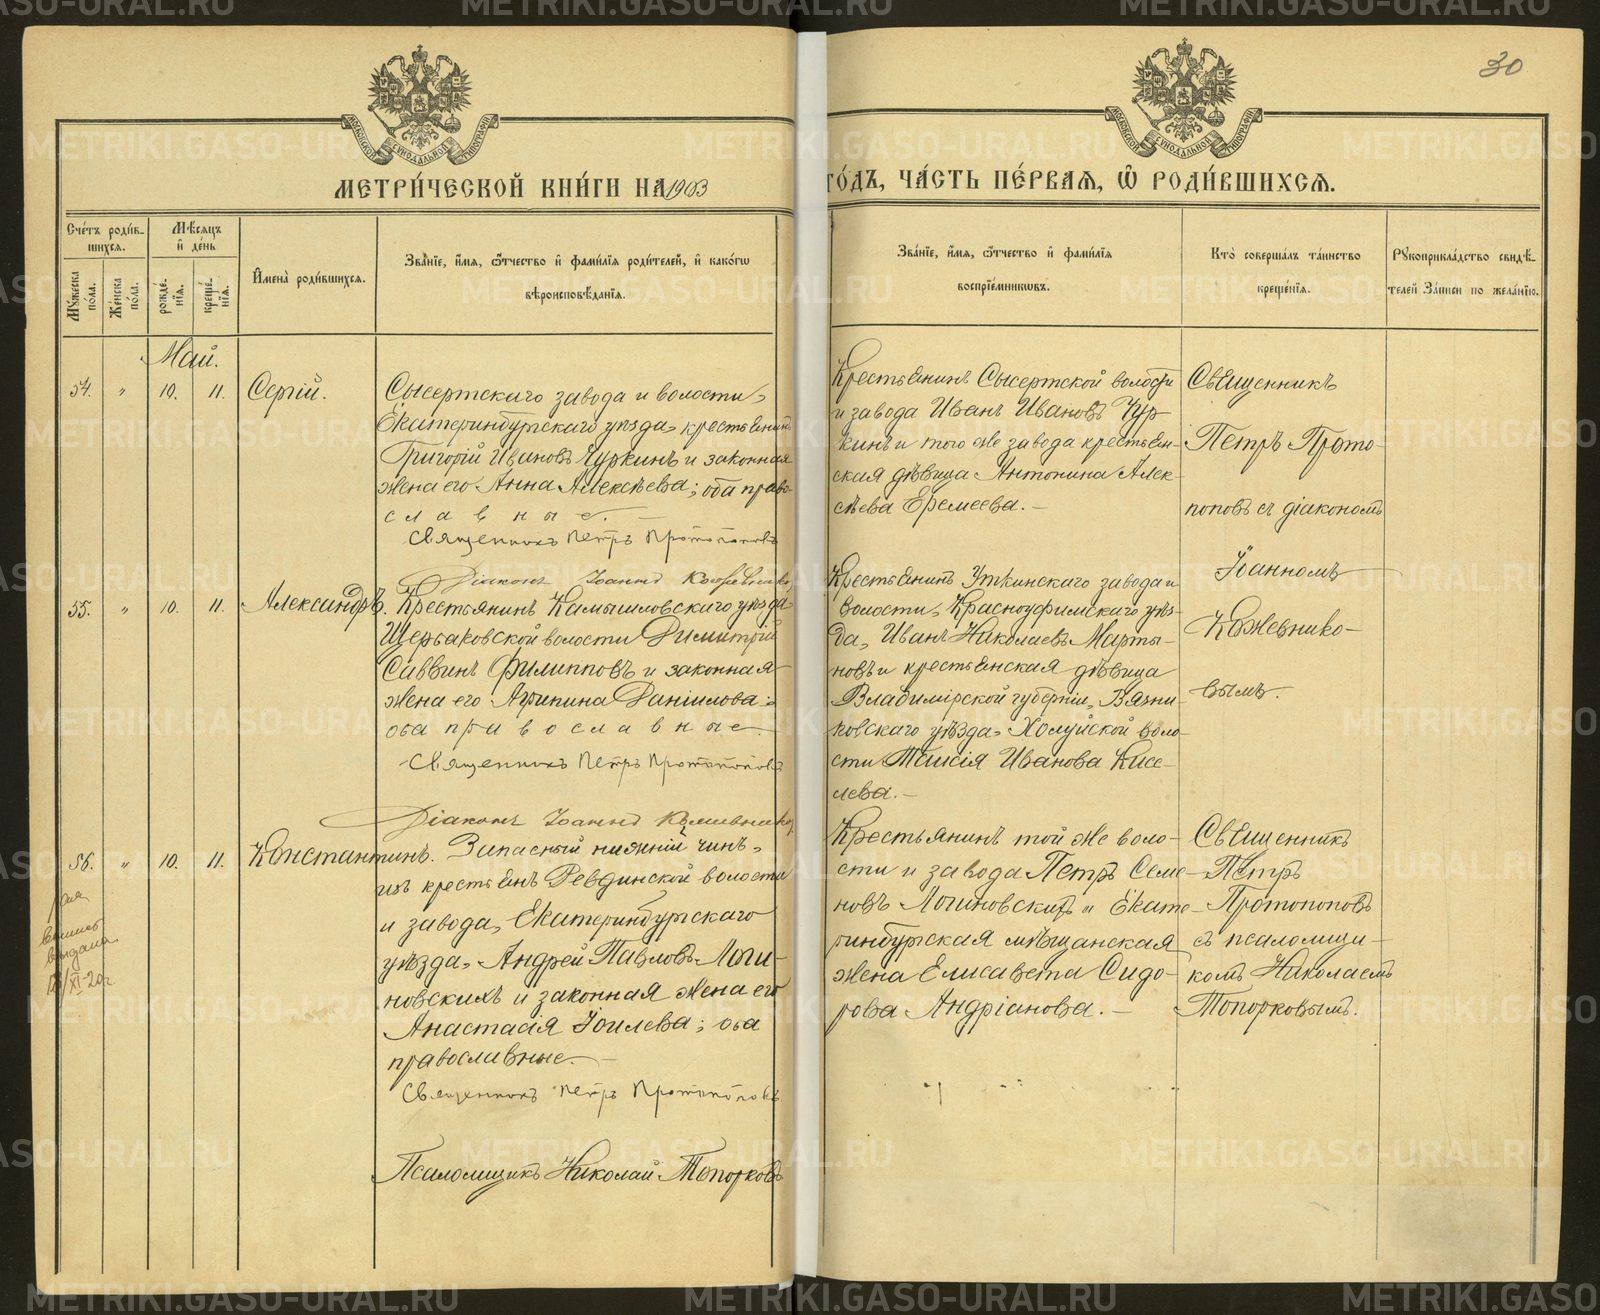 30
МОСКОВСКОЙ СУНОДАЛЬНОЙ ТИПОГРАФІИ
МОСКОВСКОЙ СУНОДАЛЬНОЙ ТИПОГРАФІИ
МЕТРИ́ЧЕСКОЙ КНИ́ГИ НА 1903
ГО́ДЪ, ЧА́СТЬ ПЕ́РВАЯ, Ѡ҆ РОДИ́ВШИХСЯ.
Сче́тъ роди́в-
шихся.
Мꙋ́жеска
по́ла.
Же́нска
по́ла.
Мѣ́сяцъ
и҆ де́нь
рожде́-
нїя.
креще́-
нїя.
И҆мена̀ роди́вшихся.
Зва́нїе, и҆́мя, ѻ҆́тчество и҆ фами́лїя роди́телей, и҆ како́гѡ
вѣроисповѣ́данїя.
Зва́нїе, и҆́мя, ѻ҆́тчество и҆ фами́лїя
воспрїе́мниковъ.
Кто̀ соверша́лъ та́инство
креще́нїя.
Рꙋкоприкла́дство свидѣ́-
телей за́писи по жела́нїю.
Май.
54. " 10. 11. Сергій.
Сысертскаго завода и волости,
Екатеринбургскаго уѣзда, крестьянинъ
Григорій Ивановъ Чуркинъ и законная
жена его Анна Алексѣева; оба право-
славные.
Священникъ Петръ Протопоповъ
Діаконъ Іоаннъ Кожевниковъ
Крестьянинъ Сысертской волости
и завода Иванъ Ивановъ Чур-
кинъ и того же завода крестьян-
ская дѣвица Антонина Алек-
сѣева Еремеева.
Священникъ
Петръ Прото-
поповъ съ діакономъ
Іоанномъ
Кожевнико-
вымъ.
55. " 10. 11. Александръ.
Крестьянинъ Камышловскаго уѣзда
Щербаковской волости Димитрій
Саввинъ Филипповъ и законная
жена его Агрипина Даніилова;
оба православные.
Священникъ Петръ Протопоповъ
Діаконъ Іоаннъ Кожевниковъ
Крестьянинъ Уткинскаго завода и
волости, Красноуфимскаго уѣз-
да, Иванъ Николаевъ Марты-
новъ и крестьянская дѣвица
Владимірской губерніи, Вязни-
ковскаго уѣзда, Холуйской воло-
сти Таисія Иванова Кисе-
лева.
56. " 10. 11. Константинъ.
выдана
Запасный нижній чинъ,
изъ крестьянъ Ревдинской волости
и завода, Екатеринбургскаго
уѣзда, Андрей Павловъ Логи-
новскихъ и законная жена его
Анастасія Іоилева; оба
православные.
Священникъ Петръ Протопоповъ
Псаломщикъ Николай Топорковъ
Крестьянинъ той же воло-
сти и завода Петръ Семе-
новъ Логиновскихъ и Екате-
ринбургская мѣщанская
жена Елисавета Сидо-
рова Андріанова.
Священникъ
Петръ
Протопоповъ
съ псаломщи-
комъ Николаемъ
Топорковымъ.
METRIKI.GASO-URAL.RU